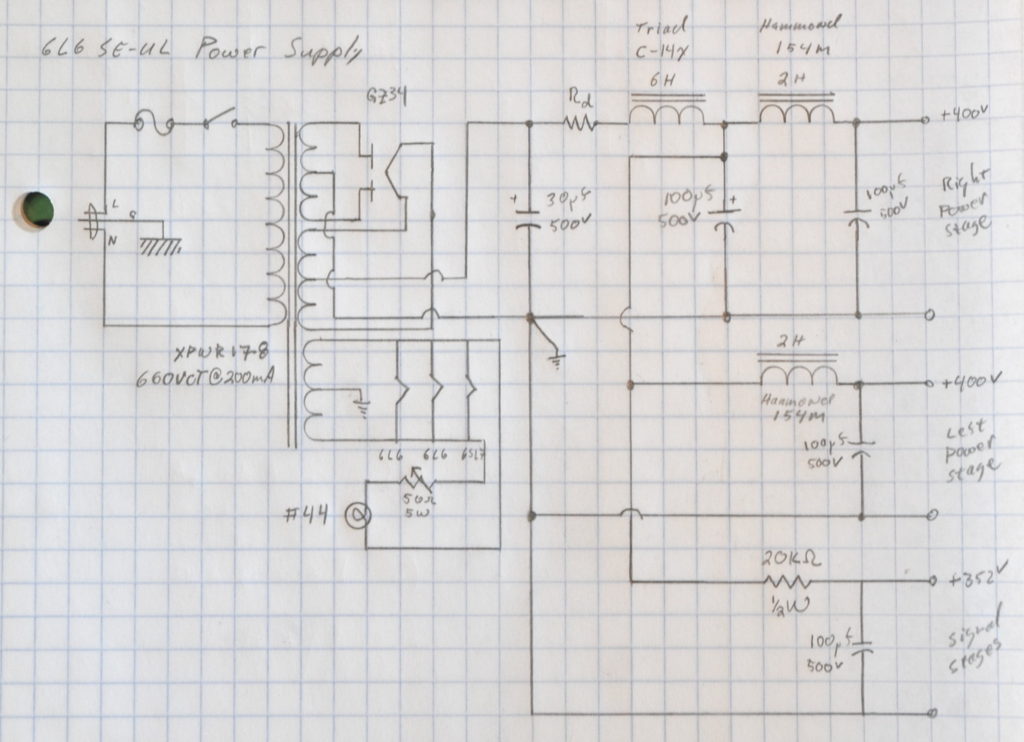 6L6 SE-UL Power Supply
Triad
C-14X
6H
Hammond
154M
2H
GZ34
Rd
+400V
L
G
N
+
30µf
500V
100µf
500V
+
100µf
500V
Right
Power
stage
XPWR178
660VCT@200mA
2H
Hammond
154M
+400V
100µf
500V
Left
Power
stage
6L6
6L6
6SL7
50Ω
5W
#44
20KΩ
½W
+352V
100µf
500V
Signal
stages